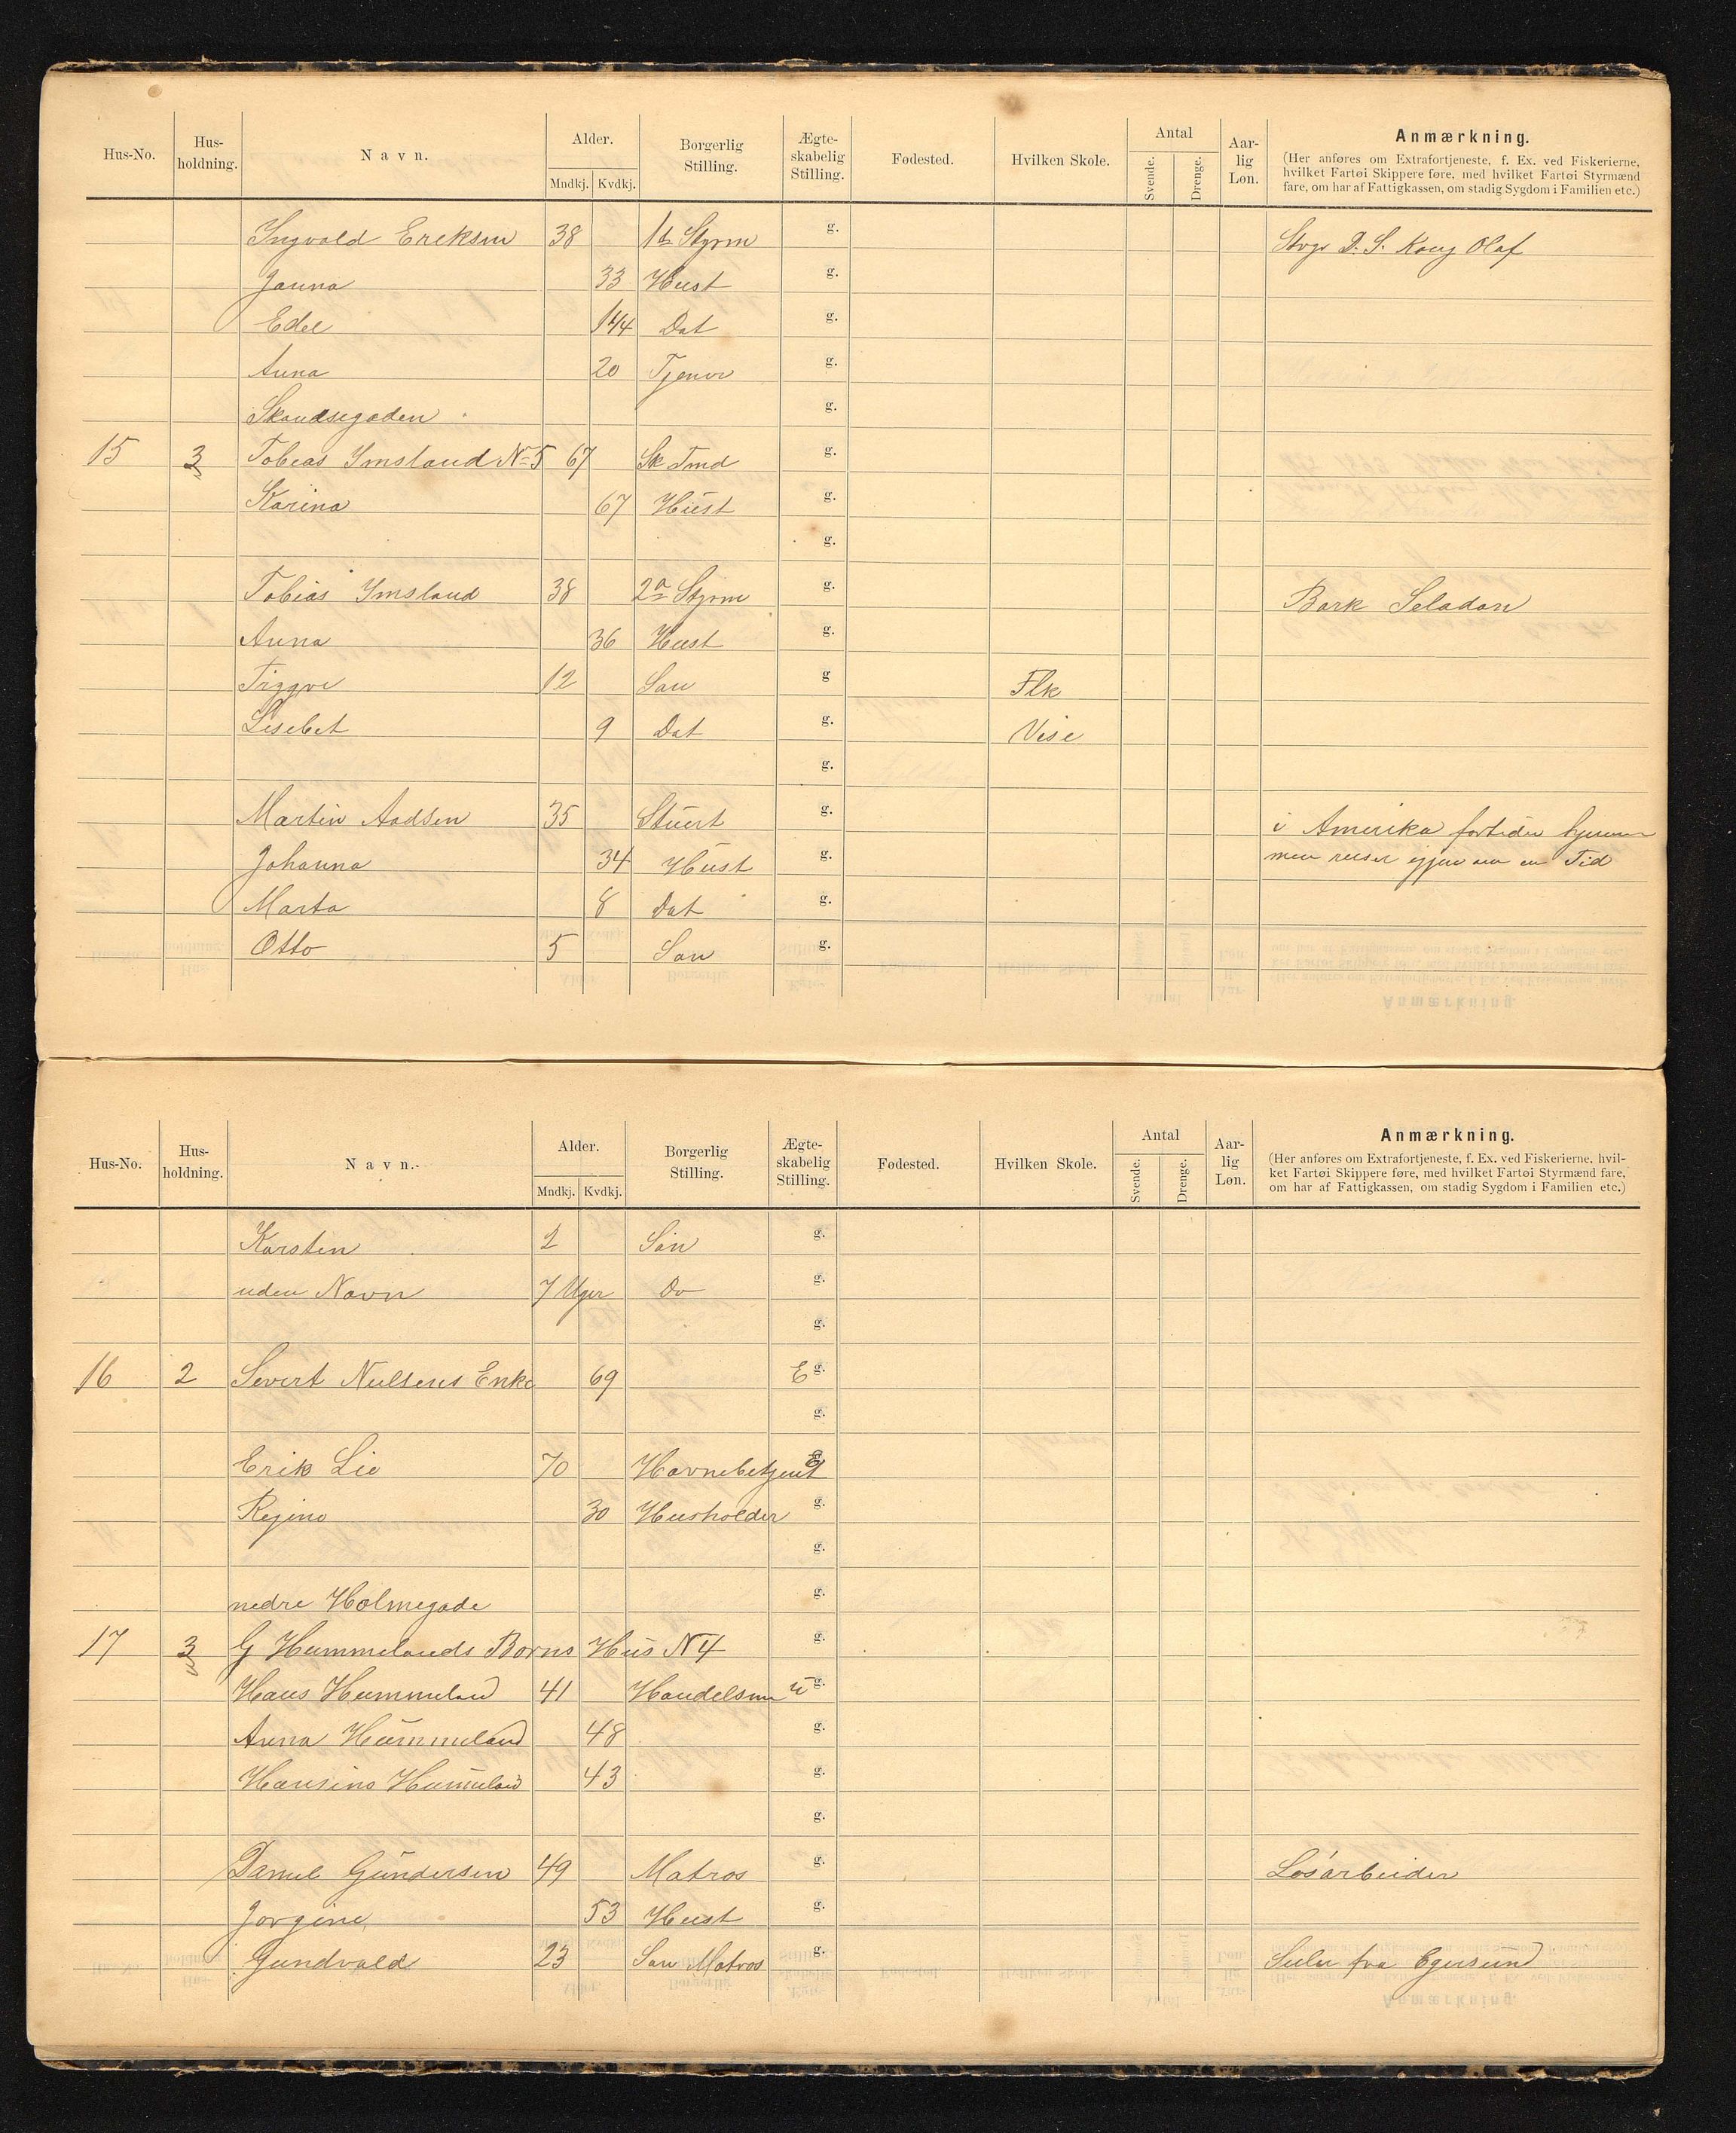 Hus-No. Hus-holdning. Navn. Alder. Mndkj. Kvdkj. Borgerlig Stilling. Ægte-skabelig Stilling. Fødested. Hvilken Skole. Antal Svende. Drenge. Aar-lig Løn. Anmærkning.
(Her anføres om Extrafortjeneste, f. Ex. ved Fiskerierne,
hvilket Fartøi Skippere føre, med hvilket Fartøi Styrmænd
fare, om har af Fattigkassen, om stadig Sygdom i Familien etc.)
Ingvald Eriksen 38 1ste Styrm g. Stvgr D. S. Kong Olaf
Janna 33 Hust g.
Edel 1 1/4 Dat g.
Anna 20 Tjener g.
Skandsegaden g.
15 3 Tobias Ymsland No 5 67 Sk Tmd g.
Karina 67 Hust g.
g.
Tobias Ymsland 38 2n Styrm g. Bark Seladon
Anna 36 Hust g.
Tryggve 12 Søn g Flk
Lisebet 9 Dat g. Vise
g.
Martin Aadsen 35 Stuert g. i Amerika fortiden hjemme
Johanna 34 Hust g. men reiser igjen om en Tid
Marta 8 Dat g.
Otto 5 Søn g.
Hus-No. Hus-holdning. Navn. Alder. Mndkj. Kvdkj. Borgerlig Stilling. Ægte-skabelig Stilling. Fødested. Hvilken Skole. Antal Svende. Drenge. Aar-lig Løn. Anmærkning.
(Her anføres om Extrafortjeneste, f. Ex. ved Fiskerierne, hvil-
ket Fartøi Skippere føre, med hvilket Fartøi Styrmænd fare,
om har af Fattigkassen, om stadig Sygdom i Familien etc.)
Karsten 2 Søn g.
uden Navn 7 Uger Do g.
g.
16 2 Severt Nielsens Enke 69 E g.
g.
Erik Lie 70 Havnebetjent E g.
Regine 30 Husholder g.
g.
nedre Holmegade g.
17 3 G Hummelands Børns Hus N 4 g.
Hans Hummeland 41 Handelsm u g.
Anna Hummeland 48 g.
Hansine Hummeland 43 g.
g.
Daniel Gundersen 49 Matros g. Løsarbeider
Jorgine 53 Hust g.
Gundvald 23 Søn Matros g. Seiler fra Egersund